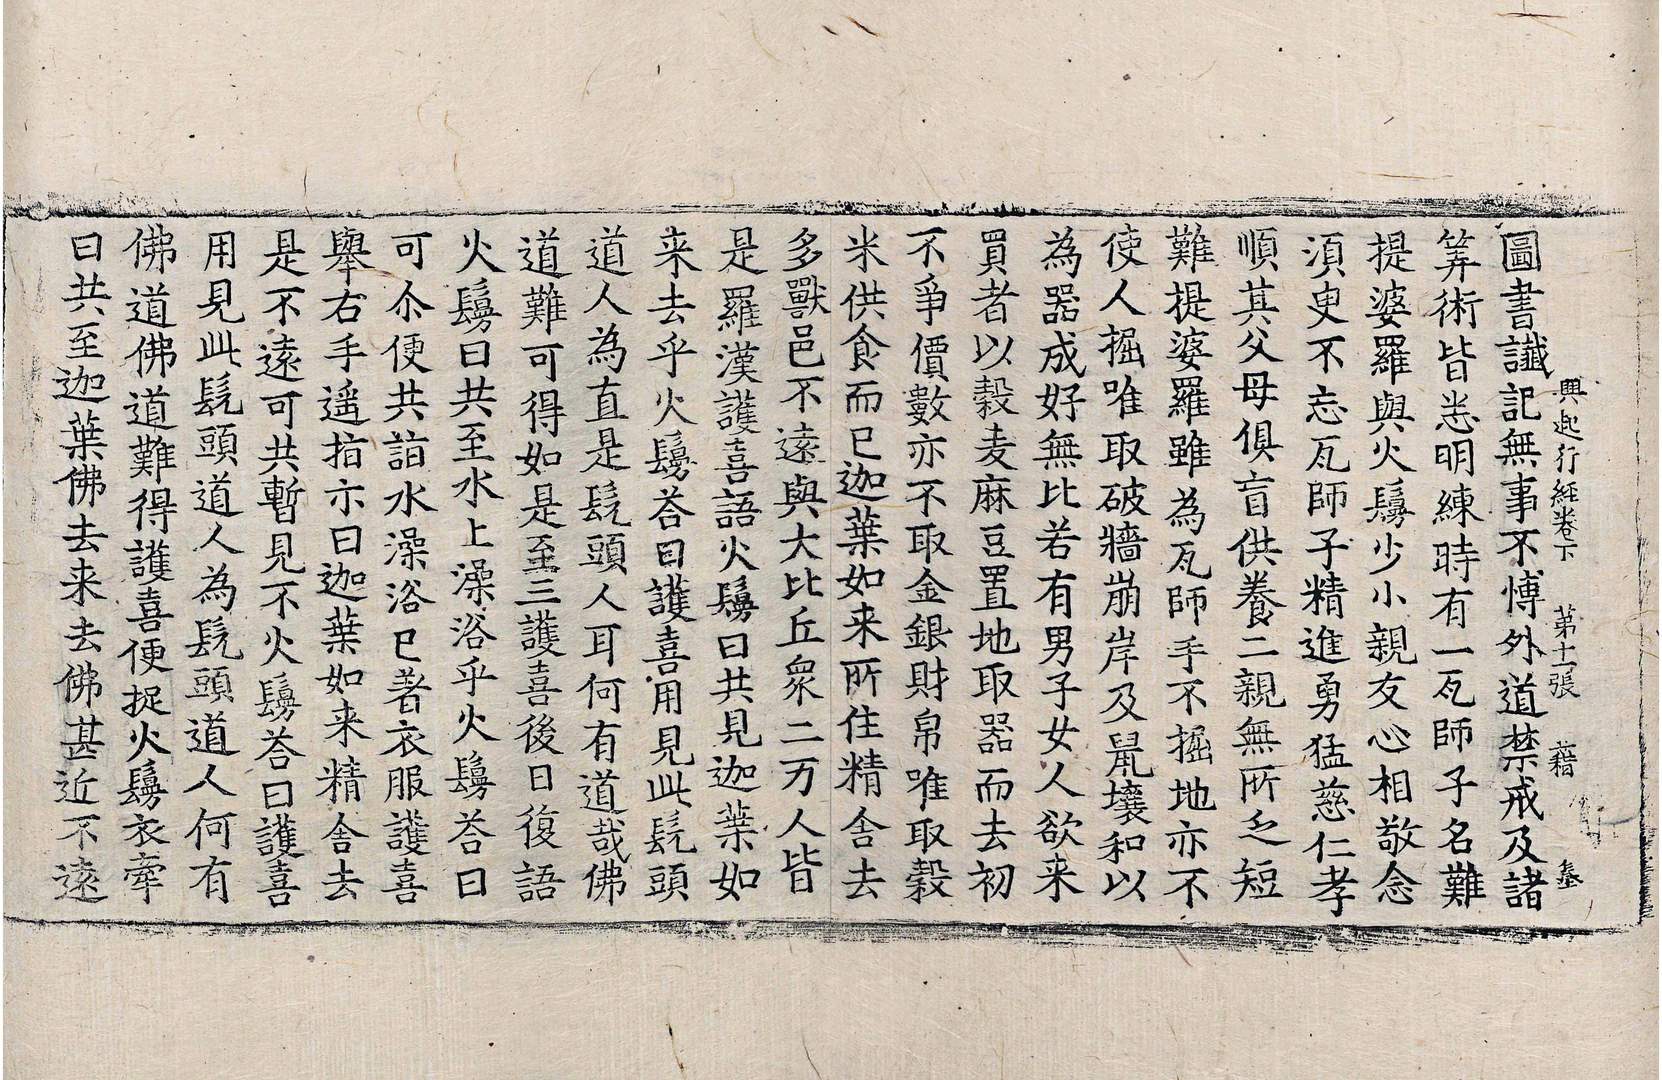 興起行經卷下　第十一張　籍
圖書讖記無事不愽外道禁戒及諸
筭術皆悉明練時有一瓦師子名難
提婆羅與火鬘少小親友心相敬念
湏臾不忘瓦師子精進勇猛慈仁孝
順其父母俱盲供養二親無所乏短
難提婆羅雖為瓦師手不掘地亦不
使人掘唯取破牆崩岸及鼠壤和以
為器成好無比若有男子女人欲来
買者以穀麦麻豆置地取器而去初
不爭價數亦不取金銀財帛唯取穀
米供食而已迦葉如来所住精舎去
多獸邑不遠與大比丘衆二万人皆
是羅漢護喜語火鬘曰共見迦葉如
来去乎火鬘荅曰護喜用見此髡頭
道人為直是髡頭人耳何有道哉佛
道難可得如是至三護喜後日復語
火鬘曰共至水上澡浴乎火鬘荅曰
可尒便共詣水澡浴已著衣服護喜
舉右手遥指示曰迦葉如来精舎去
是不遠可共暫見不火鬘荅曰護喜
用見此髡頭道人為髡頭道人何有
佛道佛道難得護喜便捉火鬘衣牽
曰共至迦葉佛去来去佛甚近不遠